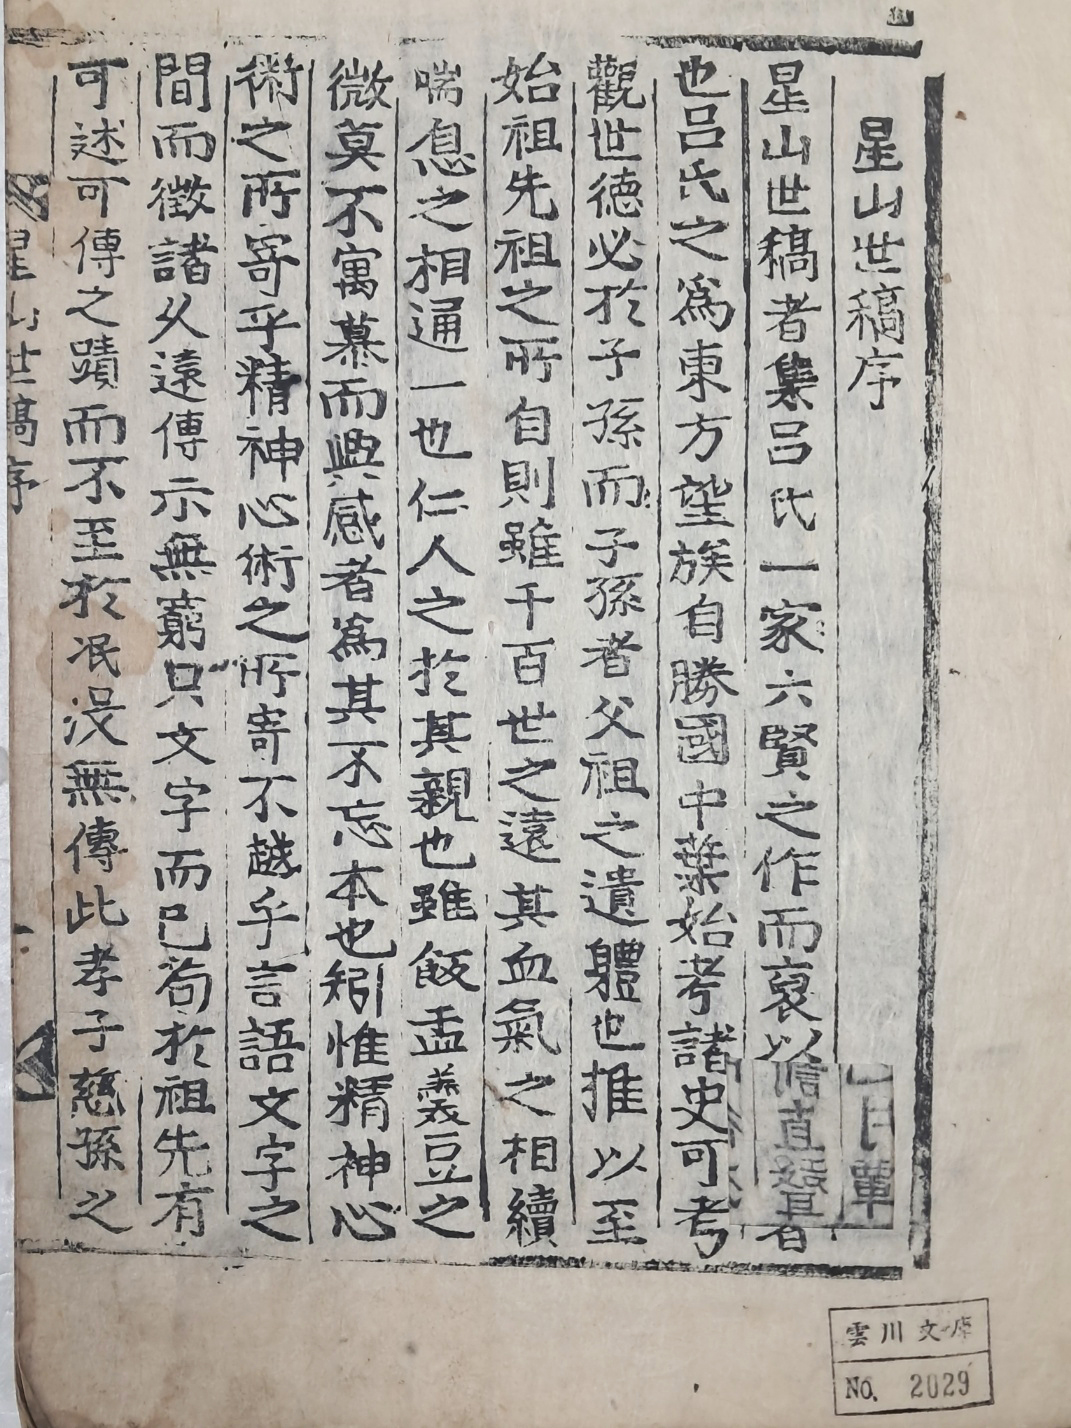 星山世稿序
星山世稿者集呂氏一家六賢之作而裒以
也呂氏之爲東方望族自勝國中葉始考諸史可考
觀世德必於子孫而子孫者父祖之遺體也推以至
始祖先祖之所自則雖千百世之遠其血氣之相續
喘息之相通一也仁人之於其親也雖飯盂羹豆之
微莫不寓慕而興感者爲其不忘本也矧惟精神心
術之所寄乎精神心術之所寄不越乎言語文字之
間而徵諸久遠傳示無窮只文字而已苟於祖先有
可述可傳之蹟而不至於泯沒無傳此孝子慈孫之
星山世稿序
雲川文庫
No. 2029